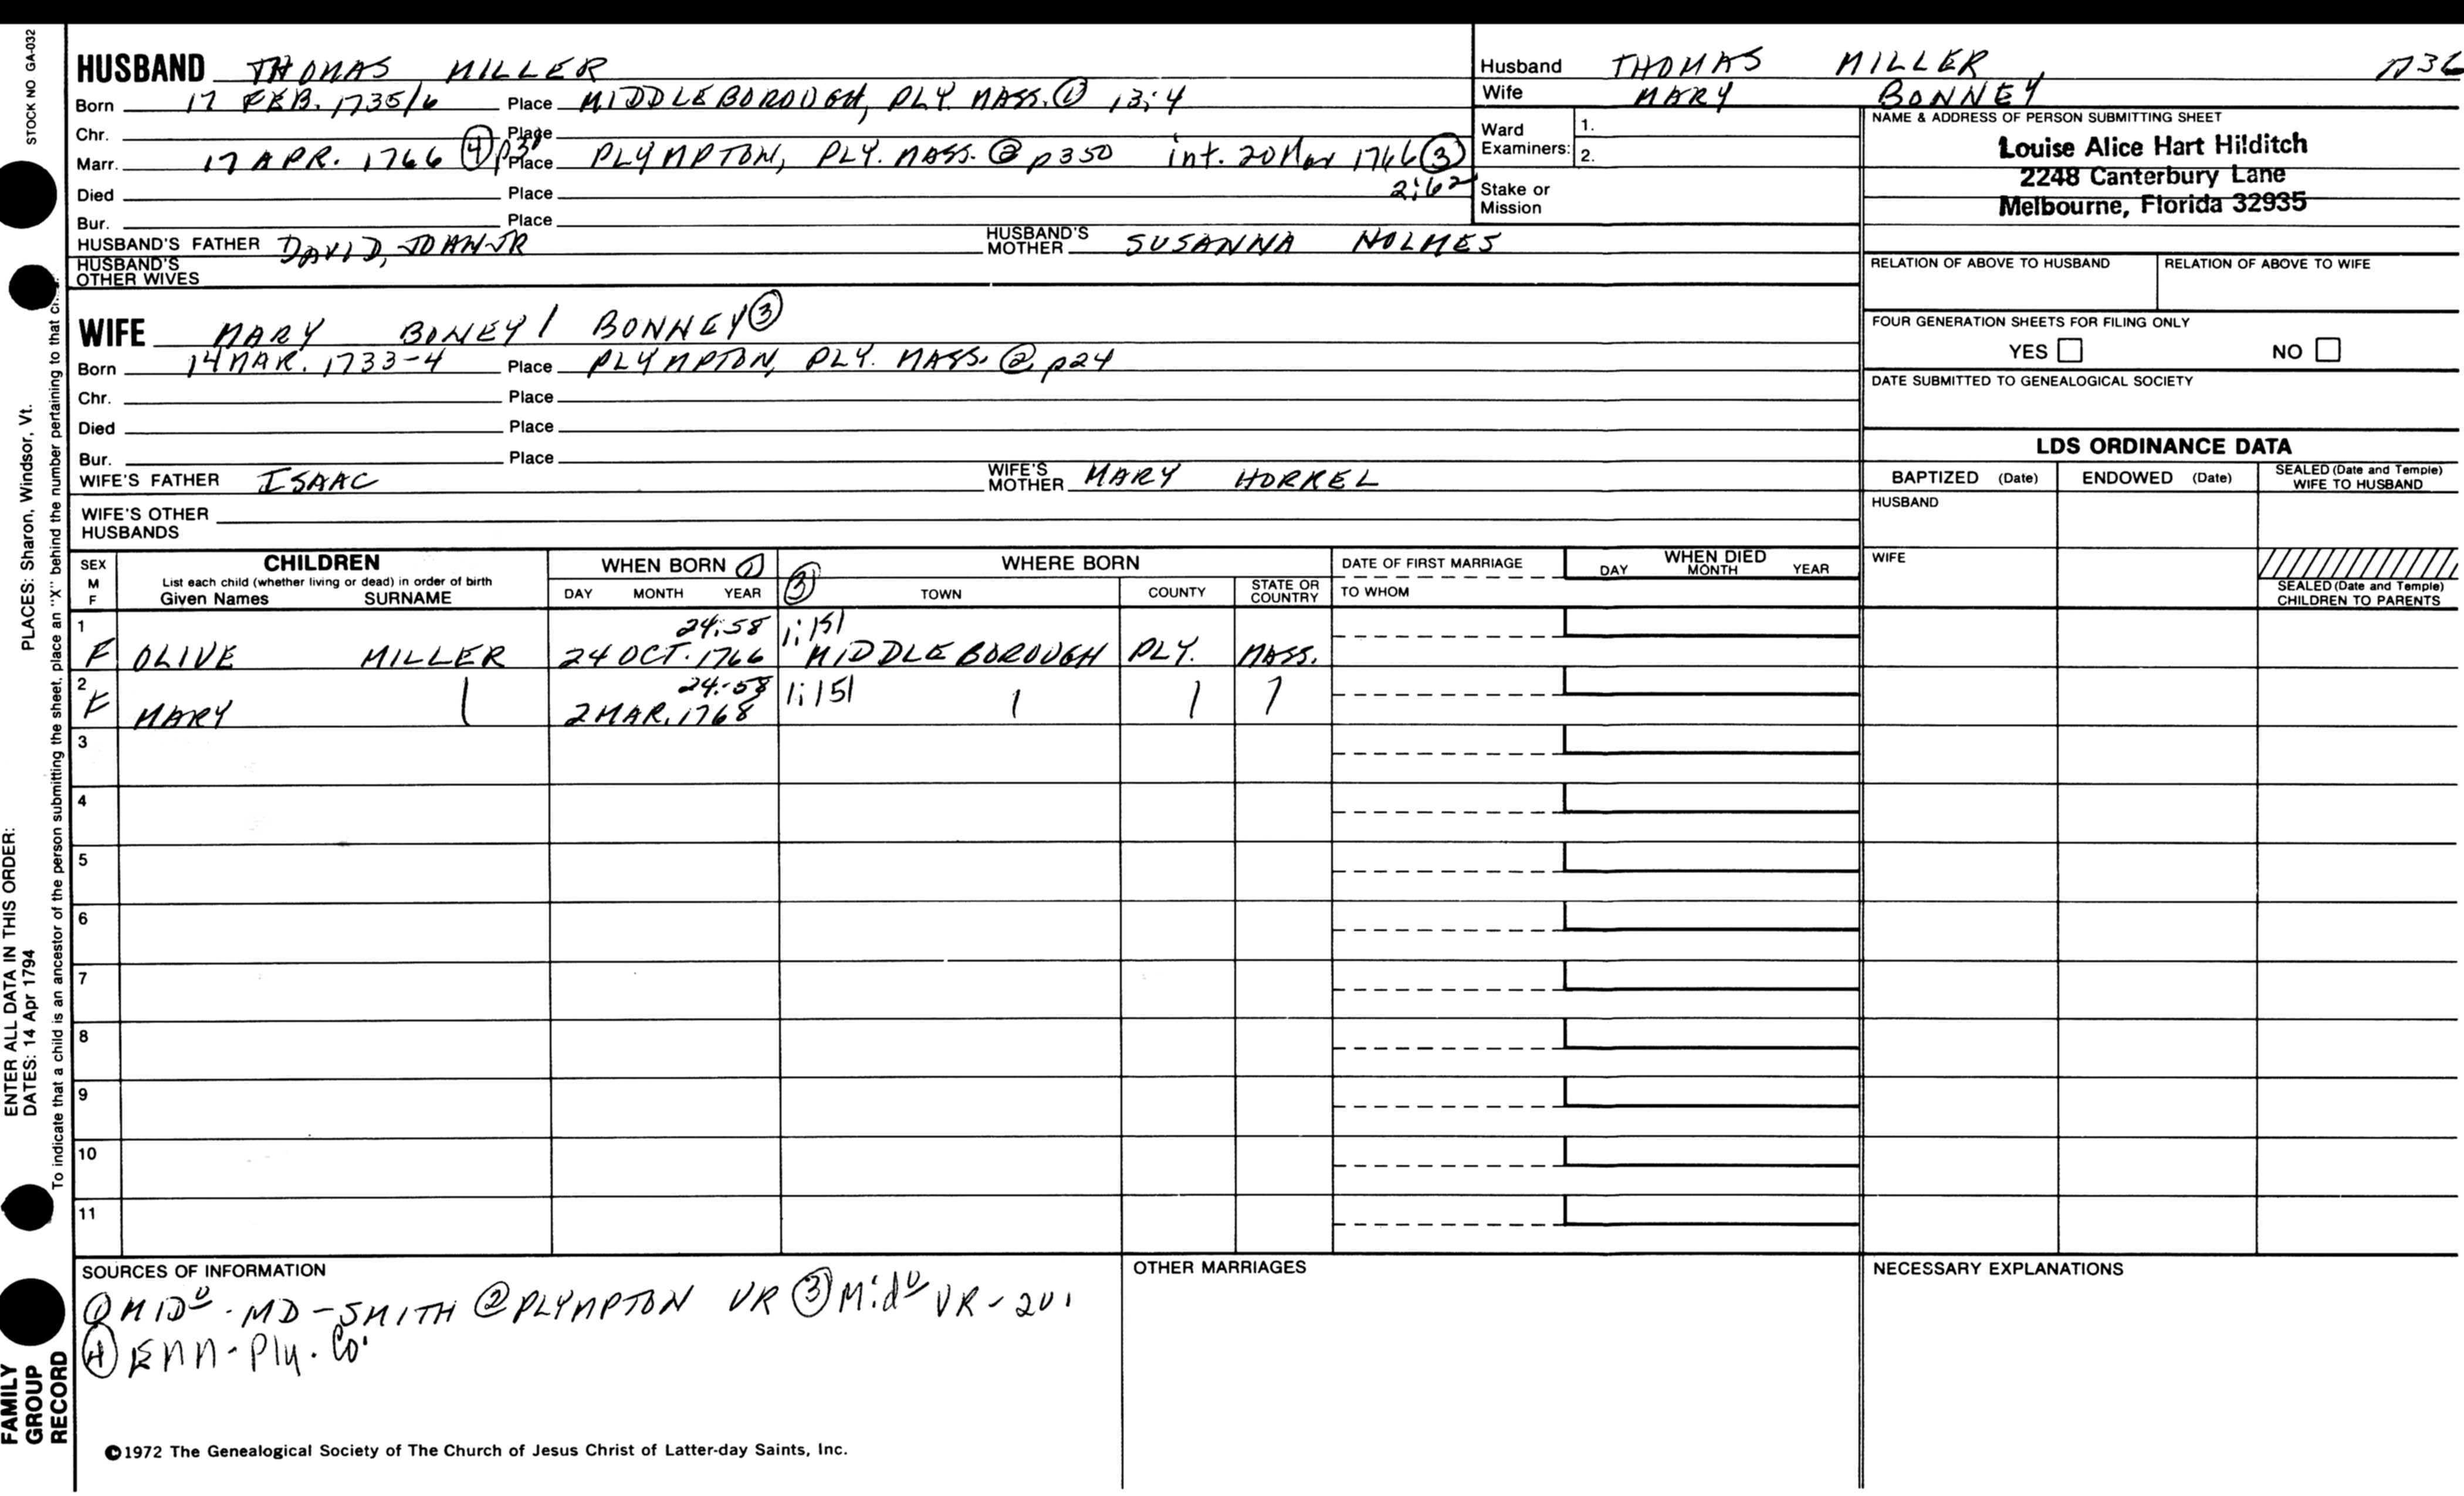 STOCK NO GA-032
HUSBAND THOMAS MILLER
Born 17 FEB. 1735/6 Place MIDDLEBOROUGH, PLY. MASS. ① 13;4
Chr. Place
Marr. 17 APR. 1766 ④ Place PLYMPTON, PLY. MASS. ② p350 int. 20 Mar 1766 ③
2:62
Died Place
Bur. Place
HUSBAND'S FATHER DAVID, JR HUSBAND'S MOTHER SUSANNA HOLMES
HUSBAND'S OTHER WIVES
Husband THOMAS MILLER 1736
Wife MARY BONNEY
Ward Examiners: 1.
2.
Stake or Mission
NAME & ADDRESS OF PERSON SUBMITTING SHEET
Louise Alice Hart Hilditch
2248 Canterbury Lane
Melbourne, Florida 32935
RELATION OF ABOVE TO HUSBAND RELATION OF ABOVE TO WIFE
FOUR GENERATION SHEETS FOR FILING ONLY
YES NO
DATE SUBMITTED TO GENEALOGICAL SOCIETY
WIFE MARY BONEY / BONNEY ③
Born 14 MAR. 1733-4 Place PLYMPTON, PLY. MASS. ② p24
Chr. Place
Died Place
Bur. Place
WIFE'S FATHER ISAAC WIFE'S MOTHER MARY HORREL
WIFE'S OTHER HUSBANDS
LDS ORDINANCE DATA
BAPTIZED (Date) ENDOWED (Date) SEALED (Date and Temple) WIFE TO HUSBAND
HUSBAND
WIFE
SEALED (Date and Temple) CHILDREN TO PARENTS
SEX M F CHILDREN
List each child (whether living or dead) in order of birth
Given Names SURNAME
WHEN BORN ①
DAY MONTH YEAR
③ WHERE BORN
TOWN COUNTY STATE OR COUNTRY
DATE OF FIRST MARRIAGE
TO WHOM
WHEN DIED
DAY MONTH YEAR
1 24:58 1;151
F OLIVE MILLER 24 OCT. 1766 MIDDLEBOROUGH PLY. MASS.
2 24:58 1;151
F MARY 2 MAR. 1768
3
4
5
6
7
8
9
10
11
SOURCES OF INFORMATION
① MIDO - MD - SMITH ② PLYMPTON VR ③ Mido VR -
④ Ply. Co.
OTHER MARRIAGES
NECESSARY EXPLANATIONS
©1972 The Genealogical Society of The Church of Jesus Christ of Latter-day Saints, Inc.
FAMILY GROUP RECORD
ENTER ALL DATA IN THIS ORDER:
DATES: 14 Apr 1794
PLACES: Sharon, Windsor, Vt.
To indicate that a child is an ancestor of the person submitting the sheet, place an "X" behind the number pertaining to that